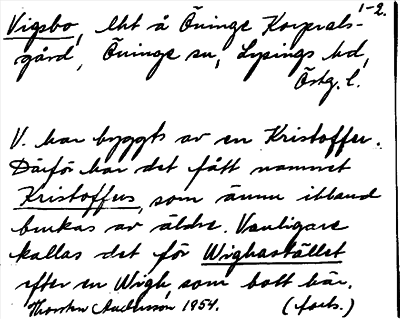 1-2.
Vigsbo, lht å Öninge Korprals-
gård, Öninge su, Lysings hd,
Östg. l.
V. har byggts av en Kristoffer.
Därför har det fått namnet
Kristoffers, som ännu ibland
brukas av äldre. Vanligare
kallas det för Wighastället
efter en Wigh, som bott här.
Thorsten Andersson 1954. (forts.)